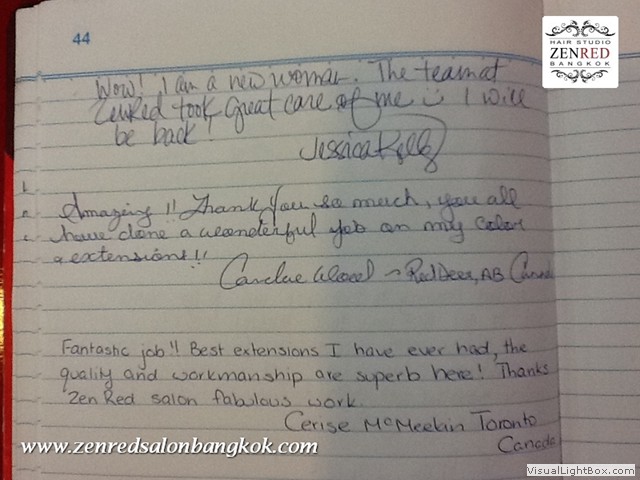 44
HAIR STUDIO
ZENRED
BANGKOK
Wow! I am a new woman. The team at
ZenRed took great care of me I will
be back!
Jessica Kelly
Amazing!! Thank you so much, you all
have done a wonderful job on my color
& extensions!!
Wood ~ Red Deer, AB Canada
Fantastic job!! Best extensions I have ever had, the
quality and workmanship are superb here! Thanks
Zen Red salon fabulous work.
Cerise McMeekin Toronto
Canada
www.zenredsalonbangkok.com
VisualLightBox.com